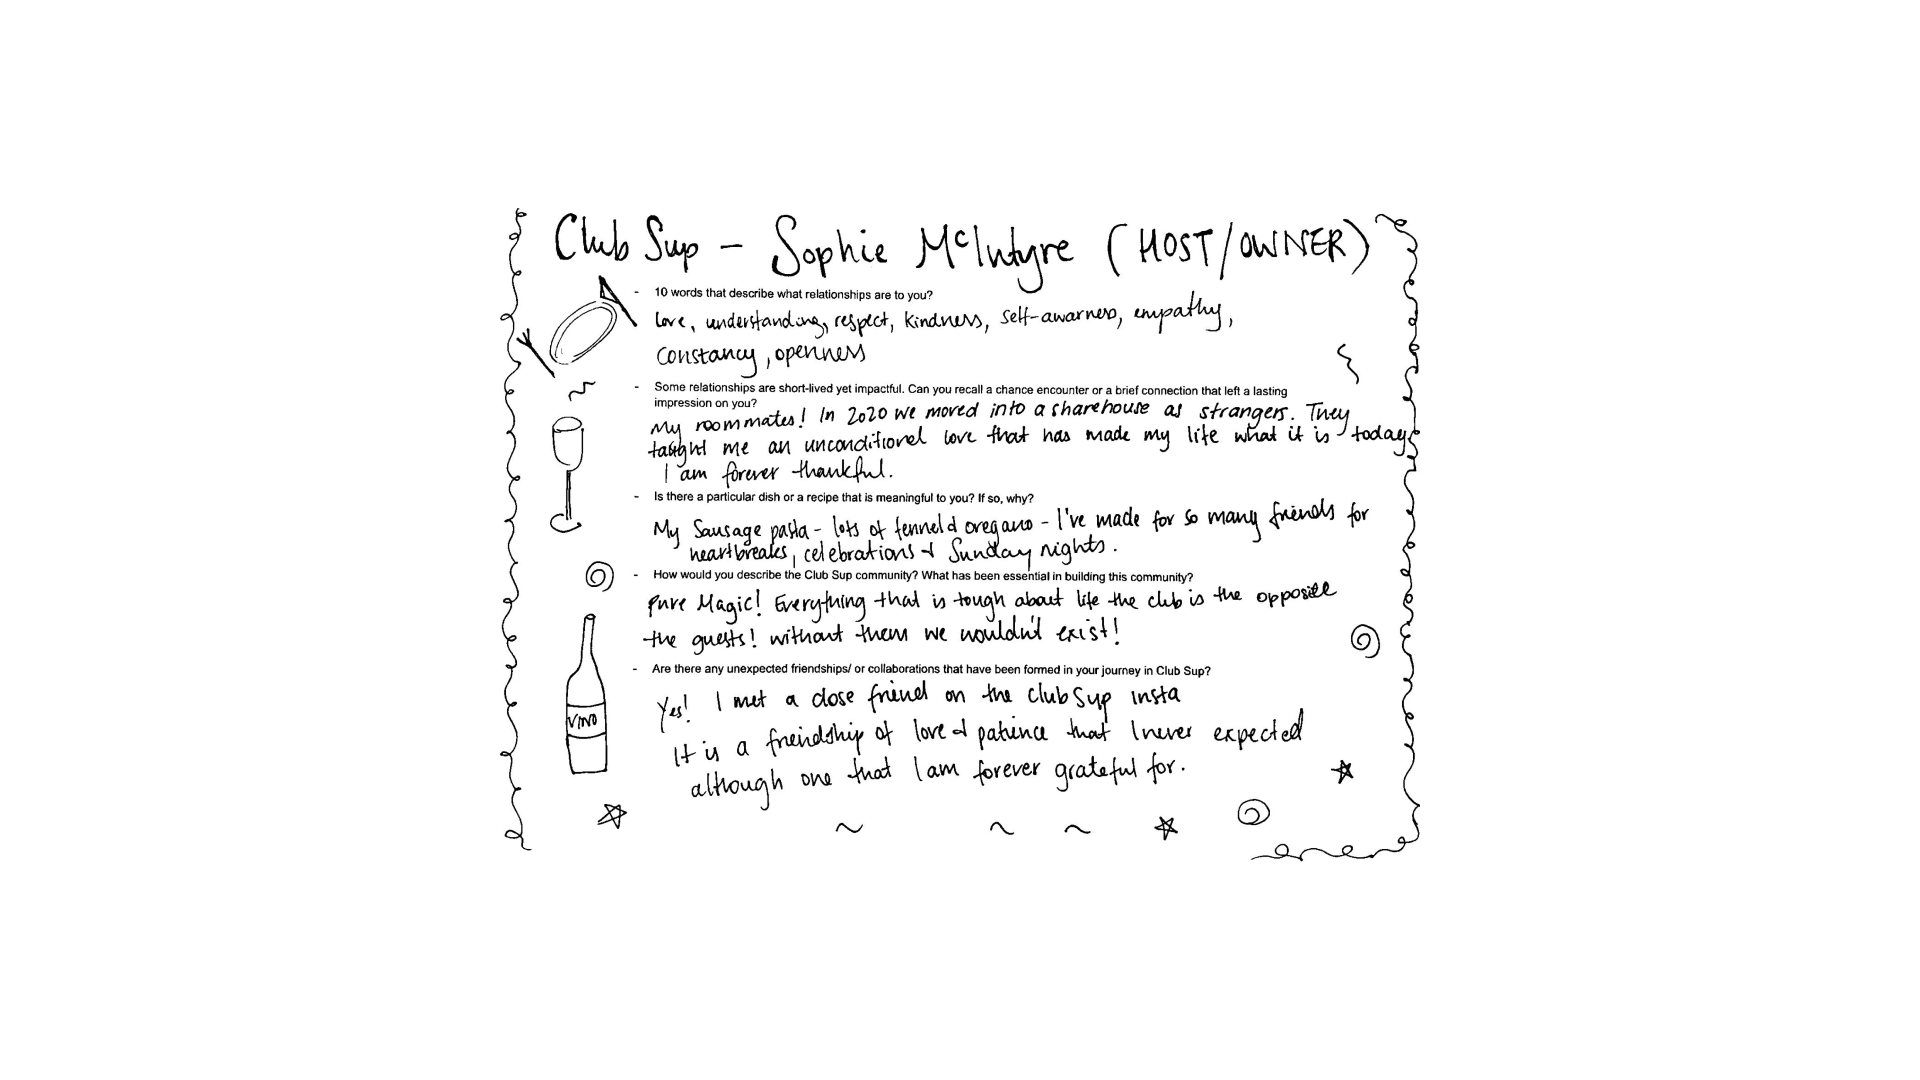 Club Sup - Sophie McIntyre (HOST/OWNER)
- 10 words that describe what relationships are to you?
Love, understanding, respect, kindness, self-awarness, empathy,
constancy, openness
- Some relationships are short-lived yet impactful. Can you recall a chance encounter or a brief connection that left a lasting
impression on you?
My roommates! In 2020 we moved into a sharehouse as strangers. They
taught me an unconditional love that has made my life what it is today
I am forever thankful.
- Is there a particular dish or a recipe that is meaningful to you? If so, why?
My Sausage pasta - lots of fennel & oregano - I've made for so many friends for
heartbreaks, celebrations & Sunday nights.
- How would you describe the Club Sup community? What has been essential in building this community?
Pure Magic! Everything that is tough about life the club is the opposite
the guests! without them we wouldn't exist!
- Are there any unexpected friendships/ or collaborations that have been formed in your journey in Club Sup?
Yes! I met a close friend on the Club Sup insta
It is a friendship of love & patience that I never expected
although one that I am forever grateful for.
VINO